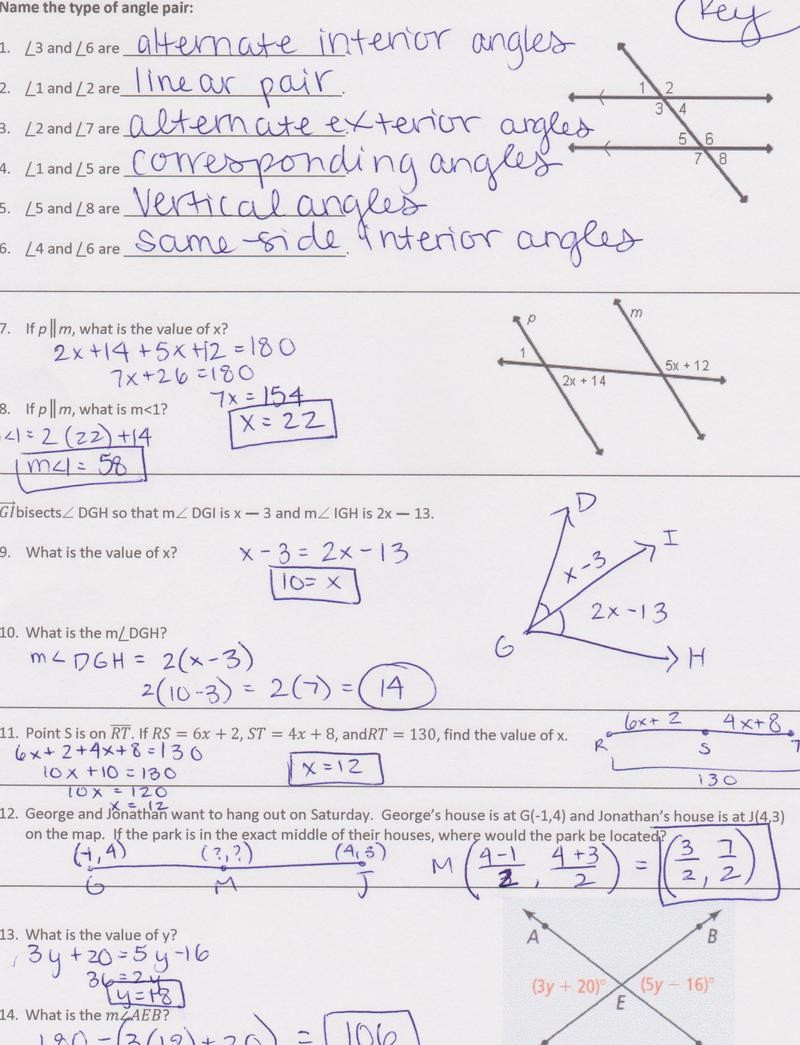 Name the type of angle pair:
Key
1. ∠3 and ∠6 are alternate interior angles
2. ∠1 and ∠2 are linear pair.
3. ∠2 and ∠7 are alternate exterior angles
4. ∠1 and ∠5 are corresponding angles
5. ∠5 and ∠8 are Vertical angles
6. ∠4 and ∠6 are same-side interior angles
1 2
3 4
5 6
7 8
7. If p∥m, what is the value of x?
2x+14+5x+12=180
7x+26=180
7x=154
x=22
8. If p∥m, what is m<1?
<1=2(22)+14
m<1=58
p
m
1
2x + 14
5x + 12
GI bisects∠ DGH so that m∠ DGI is x — 3 and m∠ IGH is 2x — 13.
9. What is the value of x?
x-3=2x-13
10=x
10. What is the m∠DGH?
m∠DGH = 2(x-3)
2(10-3) = 2(7) = 14
D
I
x-3
2x-13
G
H
11. Point S is on RT. If RS = 6x + 2, ST = 4x + 8, andRT = 130, find the value of x.
6x+2+4x+8=130
10x+10=130
10x=120
x=12
x=12
6x+2 4x+8
R S T
130
12. George and Jonathan want to hang out on Saturday. George's house is at G(-1,4) and Jonathan's house is at J(4,3)
on the map. If the park is in the exact middle of their houses, where would the park be located?
(-1,4) (?,?) (4,3)
G M J
M(4-1/2, 4+3/2) = (3/2, 7/2)
13. What is the value of y?
3y+20=5y-16
36=2y
y=18
14. What is the m∠AEB?
180-(3(18)+20) = 106
A
B
(3y + 20)° (5y − 16)°
E